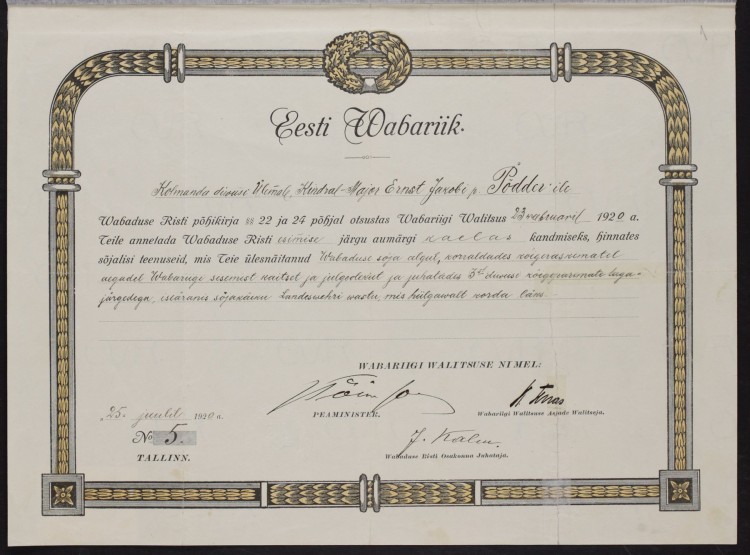 Eesti Wabariik.
Kolmanda diwiisi Ülemale, Kindral-Major Ernst Jakobi p. Põdder'ile
Wabaduse Risti põhikirja §§ 22 ja 24 põhjal otsustas Wabariigi Walitsus 23 webruaril 1920 a.
Teile annetada Wabaduse Risti esimese järgu aumärgi kaelas kandmiseks, hinnates
sõjalisi teenuseid, mis Teie ülesnäitanud Wabaduse sõja algul, korraldades kõigeraskematel
aegadel Wabariigi sisemist kaitset ja julgeolekut ja juhatades 3dã diwiisi kõiggeraskemate
järgedega, iseäranis sõjakäiku Landeswehri wastu, mis hiilgawalt korda läks
WABARIIGI WALITSUSE NIMEL:
25. juulil 1920 a.
PEAMINISTER.
Wabariigi Walitsuse Asjade Walitseja.
No 5.
TALLINN.
Wabaduse Risti Osakonna Juhataja.